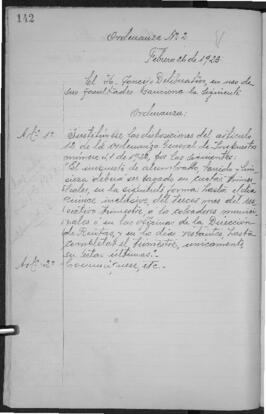 142
Ordenanza Nº 2
Febrero 26 de 1923
El H. Concejo Deliberativo, en uso de
sus facultades sanciona la siguiente
Ordenanza:
Art. 1º Sustitúyese las disposiciones del artículo
12 de la Ordenanza General de Impuestos
número de 1922, por las siguientes:
El impuesto de alumbrado, barrido y lim-
pieza deberá ser pagado en cuotas trimes-
trales, en la siguiente forma: hasta el día
quince inclusive del tercer mes del res-
pectivo trimestre, a los cobradores munici-
pales o en las oficinas de la Dirección
de Rentas, y en los días restantes, hasta
completar el trimestre, unicamente
en estas últimas.
Art. 2º Comuníquese, etc.